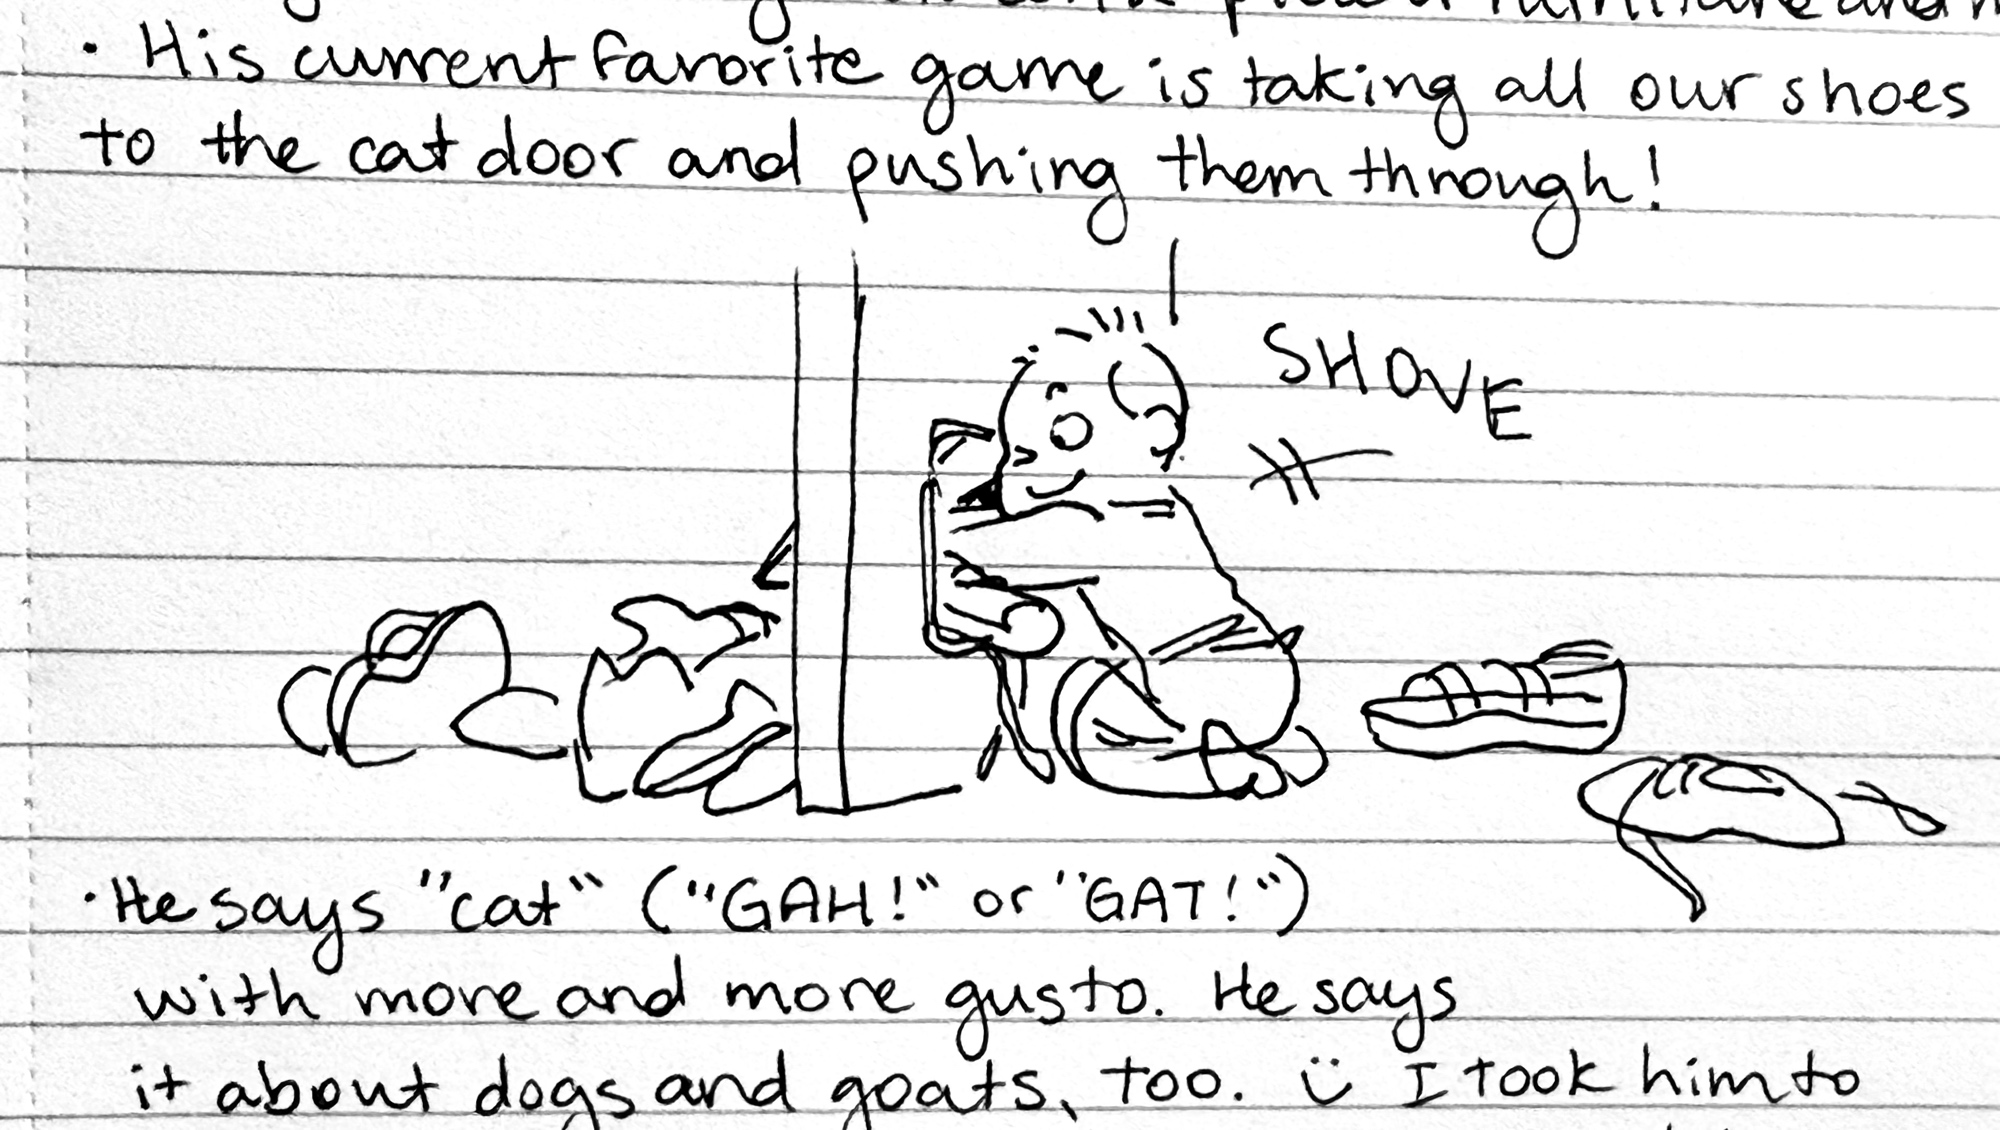 furniture and
• His current favorite game is taking all our shoes
to the cat door and pushing them through!
SHOVE
• He says "cat" ("GAH!" or "GAT!")
with more and more gusto. He says
it about dogs and goats, too. ü I took him to